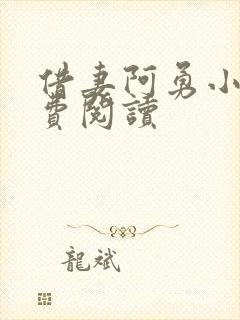 借妻阿勇小
費閱讀
龍斌